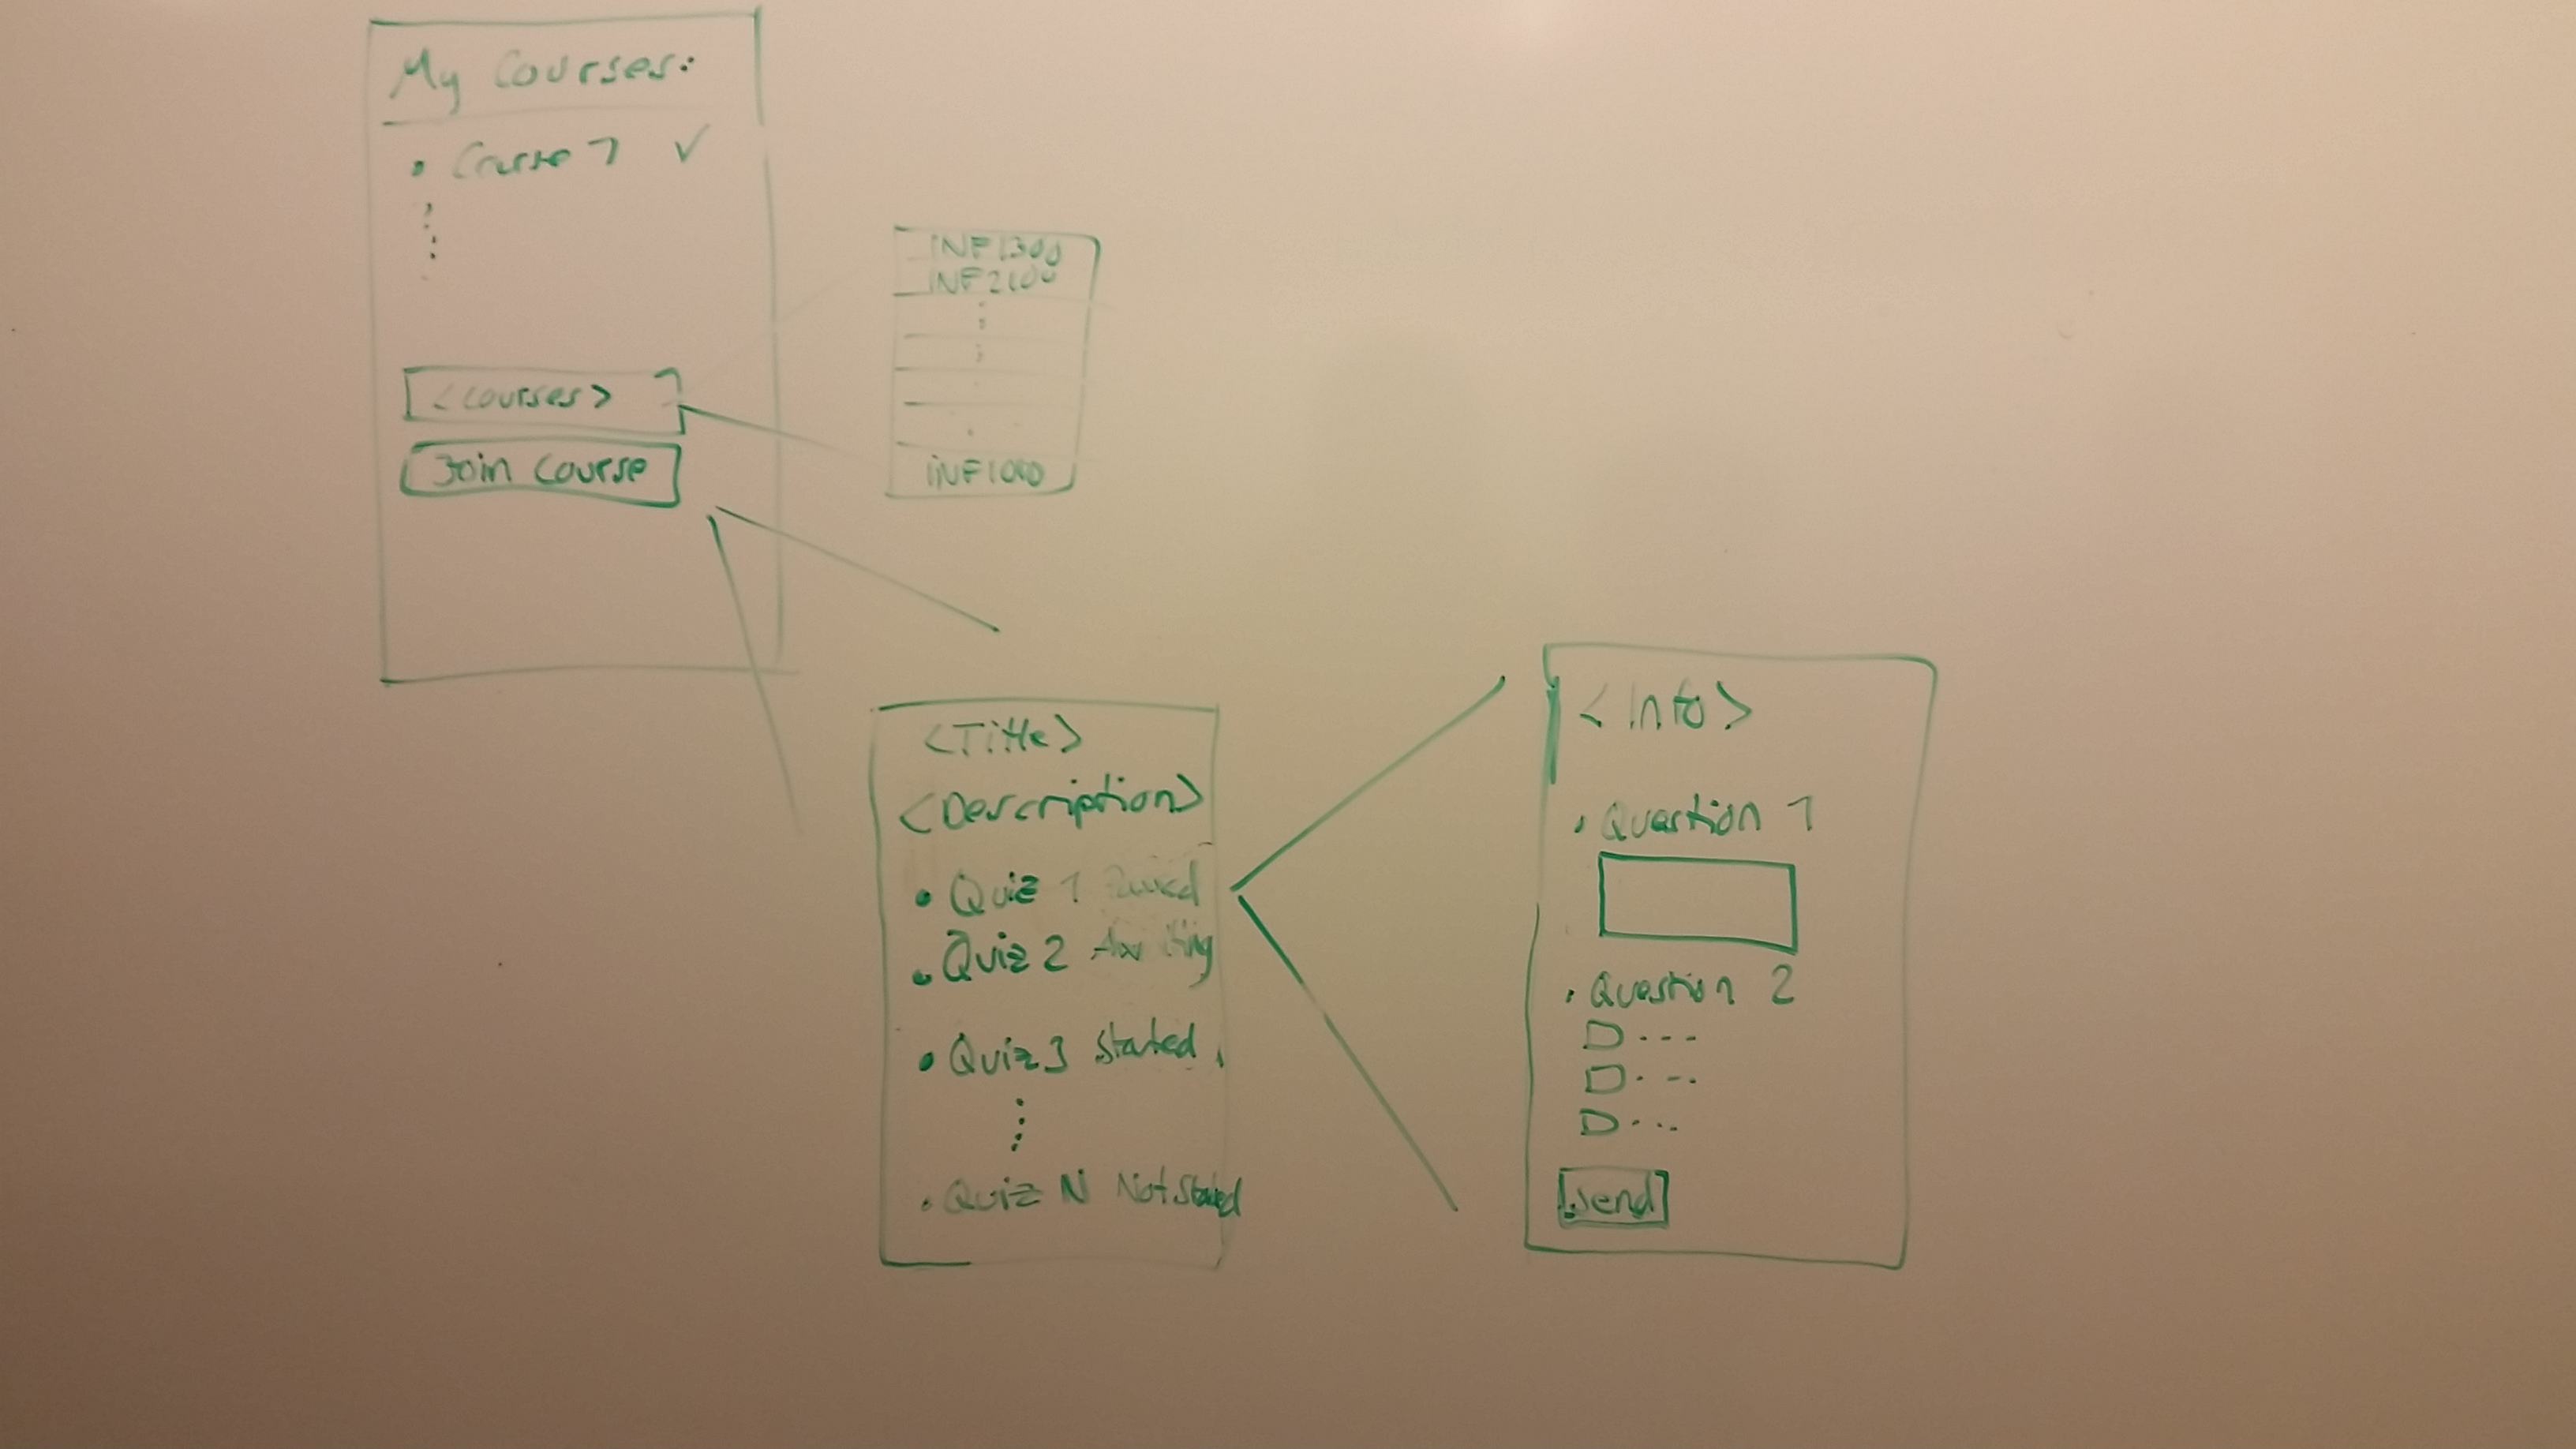 My Courses:
• Course 1 ✓
<courses>
Join Course
INF1300
INF2100
INF1000
<Title>
<Description>
• Quiz 1
• Quiz 2 Awaiting
• Quiz 3 Started
• Quiz N Not Started
<Info>
• Question 1
• Question 2
Send